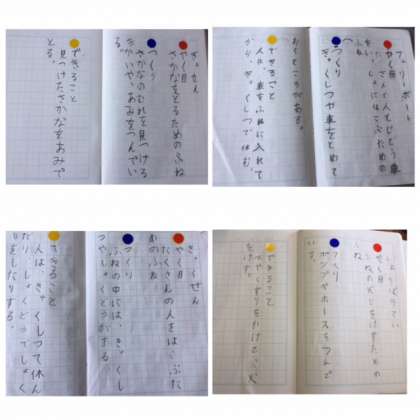 ぎょせん
やく目
さかなをとるためのふね
つくり
さかなのむれを見つける
きかいや、あみをつんでい
る。
できること
見つけたさかなをあみで
とる。
フェリーボート
やく目
たくさんの人とじどう車
をいっしょにはこぶ
ふね
つくり
きゃくしつや車をとめて
おくところがある。
できること
人は、車をふねに入れて
から、きゃくしつで休む。
きゃくせん
やく目
たくさんの人をはこぶた
めのふね
つくり
ふねの中には、きゃくし
つやしょくどうがある。
できること
人は、きゃくしつで休ん
だり、しょくどうでしょく
じをしたりする。
しょうぼうてい
やく目
ふねの火じをけすための
ふね
つくり
ポンプやホースをつんで
いる。
できること
水やくすりをかけて火じ
をけす。